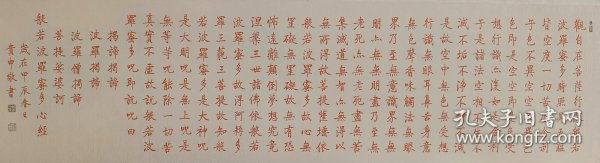 觀自在菩薩行深般若
波羅蜜多時照見五蘊
皆空度一切苦厄舍利
子色不異空空不異色
色即是空空即是色受
想行識亦復如是舍利
子是諸法空相不生不
滅不垢不淨不增不減
是故空中無色無受想
行識無眼耳鼻舌身意
無色聲香味觸法無眼
界乃至無意識界無無
明亦無無明盡乃至無
老死亦無老死盡無苦
集滅道無智亦無得以
無所得故菩提薩埵依
般若波羅蜜多故心無
罣礙無罣礙故無有恐
怖遠離顛倒夢想究竟
涅槃三世諸佛依般若
波羅蜜多故得阿耨多
羅三藐三菩提故知般
若波羅蜜多是大神咒
是大明咒是無上咒是
無等等咒能除一切苦
真實不虛故說般若波
羅蜜多咒即說咒曰
揭諦揭諦
波羅揭諦
波羅僧揭諦
菩提薩婆訶
般若波羅蜜多心經
歲在甲辰春日
貴申敬書
孔夫子旧书网